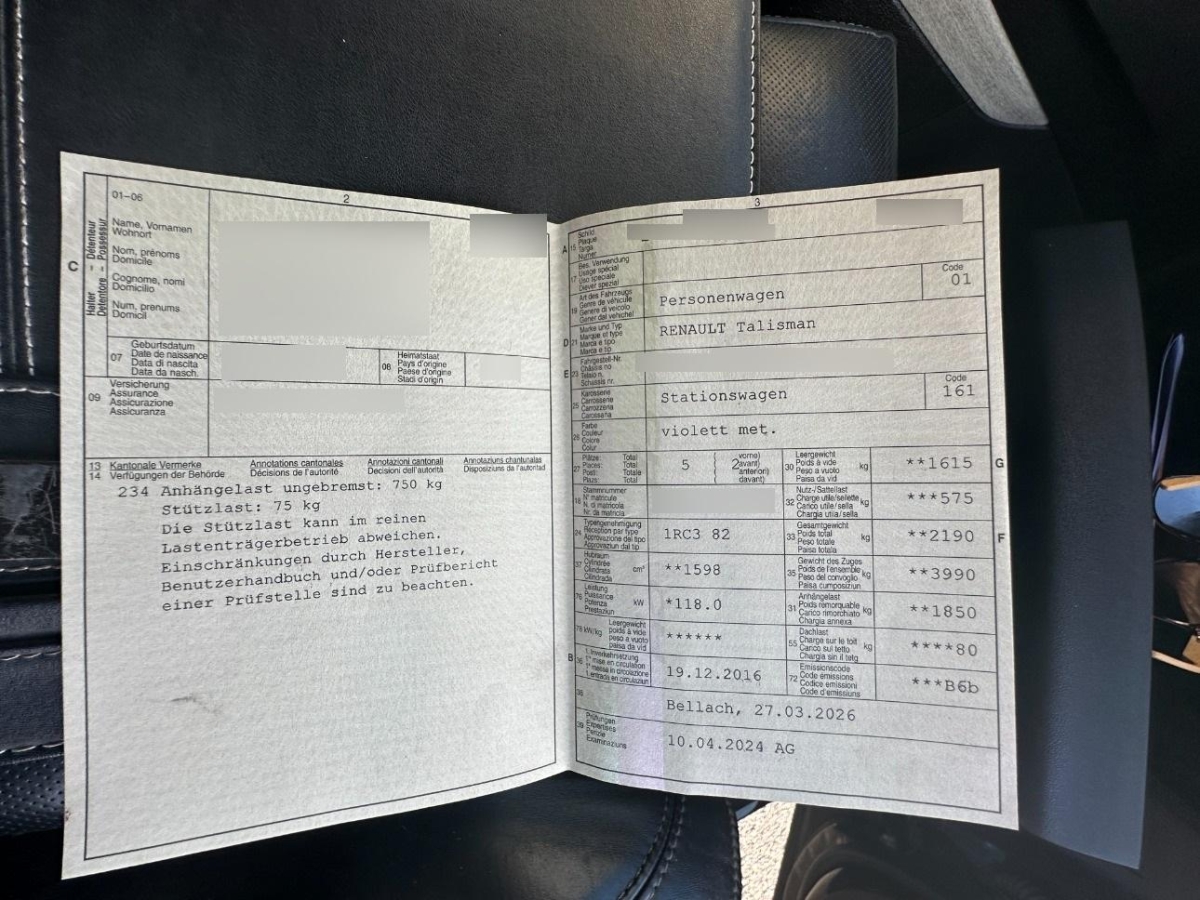 2
01–06
C
Halter – Détenteur
Detentore – Possessur
Name, Vornamen
Wohnort
Nom, prénoms
Domicile
Cognome, nomi
Domicilio
Num, prenums
Domicil
07
Geburtsdatum
Date de naissance
Data di nascita
Data da nasch.
08
Heimatstaat
Pays d'origine
Paese d'origine
Stadi d'origin
09
Versicherung
Assurance
Assicurazione
Assicuranza
13 Kantonale Vermerke Annotations cantonales Annotazioni cantonali Annotaziuns chantunalas
14 Verfügungen der Behörde Décisions de l'autorité Decisioni dell'autorità Disposiziuns da l'autoritad
234 Anhängelast ungebremst: 750 kg
Stützlast: 75 kg
Die Stützlast kann im reinen
Lastenträgerbetrieb abweichen.
Einschränkungen durch Hersteller,
Benutzerhandbuch und/oder Prüfbericht
einer Prüfstelle sind zu beachten.
3
A 15
Schild
Plaque
Targa
Numer
17
Bes. Verwendung
Usage spécial
Uso speciale
Diever spezial
19
Art des Fahrzeugs
Genre de véhicule
Genere di veicolo
Gener dal vehichel
Personenwagen
Code
01
D 21
Marke und Typ
Marque et type
Marca e tipo
Marca e tip
RENAULT Talisman
E 23
Fahrgestell-Nr.
Châssis no
Telaio n.
Schassis nr.
25
Karosserie
Carrosserie
Carrozzeria
Carossaria
Stationswagen
Code
161
26
Farbe
Couleur
Colore
Colur
violett met.
27
Plätze: Total
Places: Total
Posti: Totale
Plazs: Total
5
2
vorne)
avant)
anteriori)
davant)
30
Leergewicht
Poids à vide
Peso a vuoto
Paisa da vid
kg
**1615
G
18
Stammnummer
N° matricule
N. di matricola
Nr. da matricla
32
Nutz-/Sattellast
Charge utile/sellette
Carico utile/sella
Chargia utila/sella
kg
***575
24
Typengenehmigung
Réception par type
Approvazione del tipo
Approvaziun dal tip
1RC3 82
33
Gesamtgewicht
Poids total
Peso totale
Paisa totala
kg
**2190
F
37
Hubraum
Cylindrée
Cilindrata
Cilindrada
cm³
**1598
35
Gewicht des Zuges
Poids de l'ensemble
Peso del convoglio
Paisa cumposiziun
kg
**3990
76
Leistung
Puissance
Potenza
Prestaziun
kW
*118.0
31
Anhängelast
Poids remorquable
Carico rimorchiato
Chargia annexa
kg
**1850
78 kW/kg
Leergewicht
poids à vide
peso a vuoto
paisa da vid
******
55
Dachlast
Charge sur le toit
Carico sul tetto
Chargia sin il tetg
kg
****80
B 36
1. Inverkehrsetzung
1re mise en circulation
1a messa in circolazione
1. entrada en circulaziun
19.12.2016
72
Emissionscode
Code émissions
Codice emissioni
Code d'emissiuns
***B6b
38
Bellach, 27.03.2026
39
Prüfungen
Expertises
Perizie
Examinaziuns
10.04.2024 AG